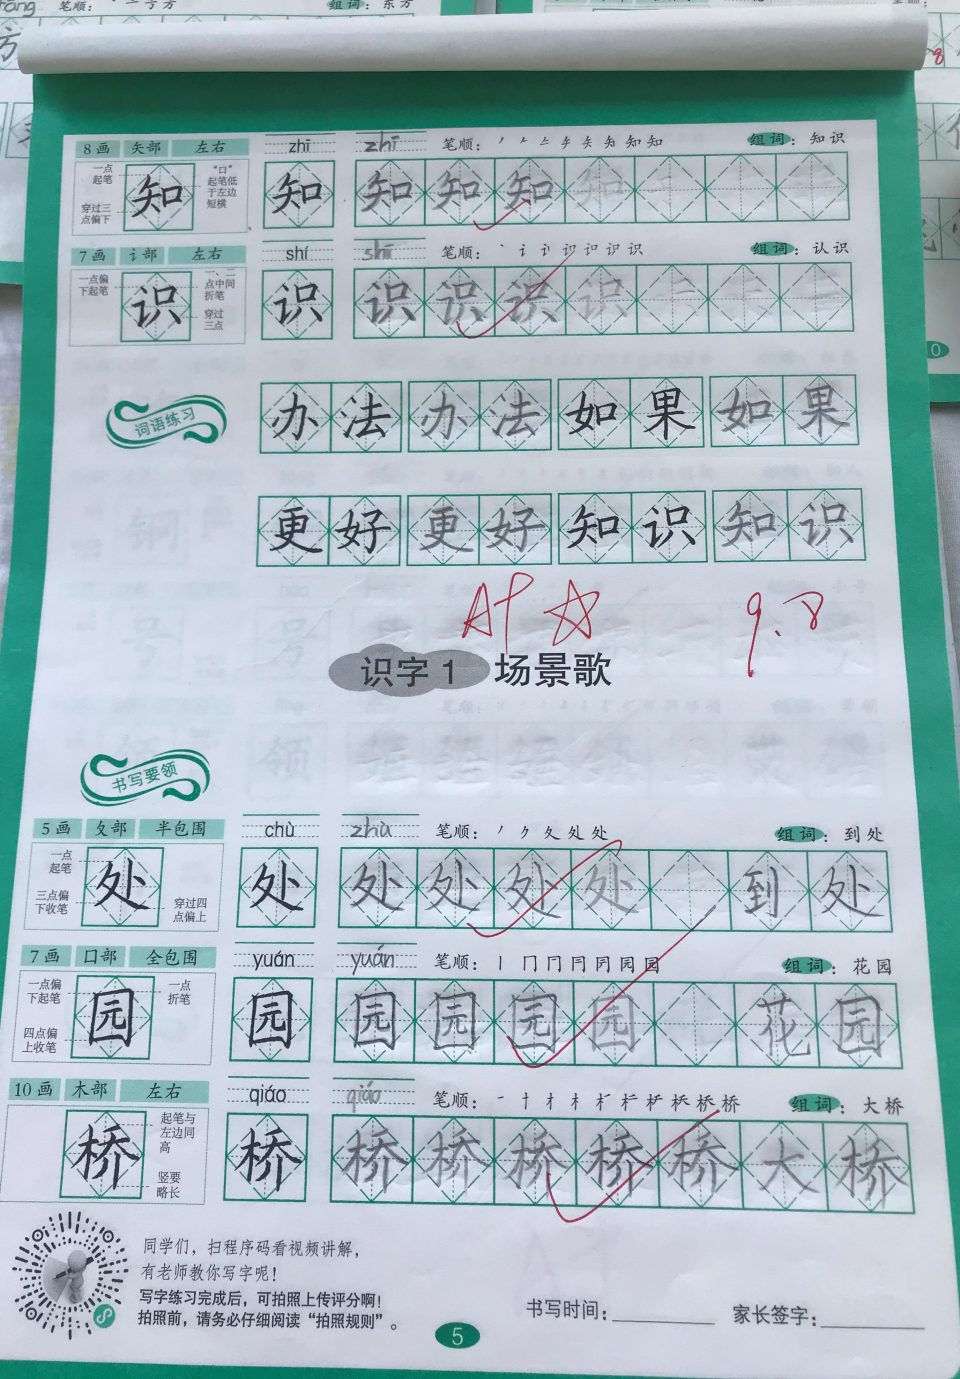 fāng 笔顺： 组词：东方
方
8画 矢部 左右 zhī zhī 笔顺： 组词：知识
一点起笔
穿过三点偏下
“口”起笔低于左边短横
知 知 知 知 知 知
7画 讠部 左右 shí shí 笔顺： 组词：认识
一点偏下起笔
一、二点中间折笔
穿过三点
识 识 识 识 识 识
词语练习
办法 办法 如果 如果
更好 更好 知识 知识
A+ 9.8
识字1 场景歌
书写要领
5画 夂部 半包围 chù zhù 笔顺： 组词：到处
一点起笔
三点偏下收笔
穿过四点偏上
处 处 处 处 处 处 到 处
7画 口部 全包围 yuán yuán 笔顺： 组词：花园
一点偏下起笔
四点偏上收笔
一点折笔
园 园 园 园 园 园 花 园
10画 木部 左右 qiáo qiáo 笔顺： 组词：大桥
起笔与左边同高
竖要略长
桥 桥 桥 桥 桥 桥 桥 大 桥
同学们，扫程序码看视频讲解，
有老师教你写字呢！
写字练习完成后，可拍照上传评分啊！
拍照前，请务必仔细阅读“拍照规则”。
书写时间： 家长签字：
5